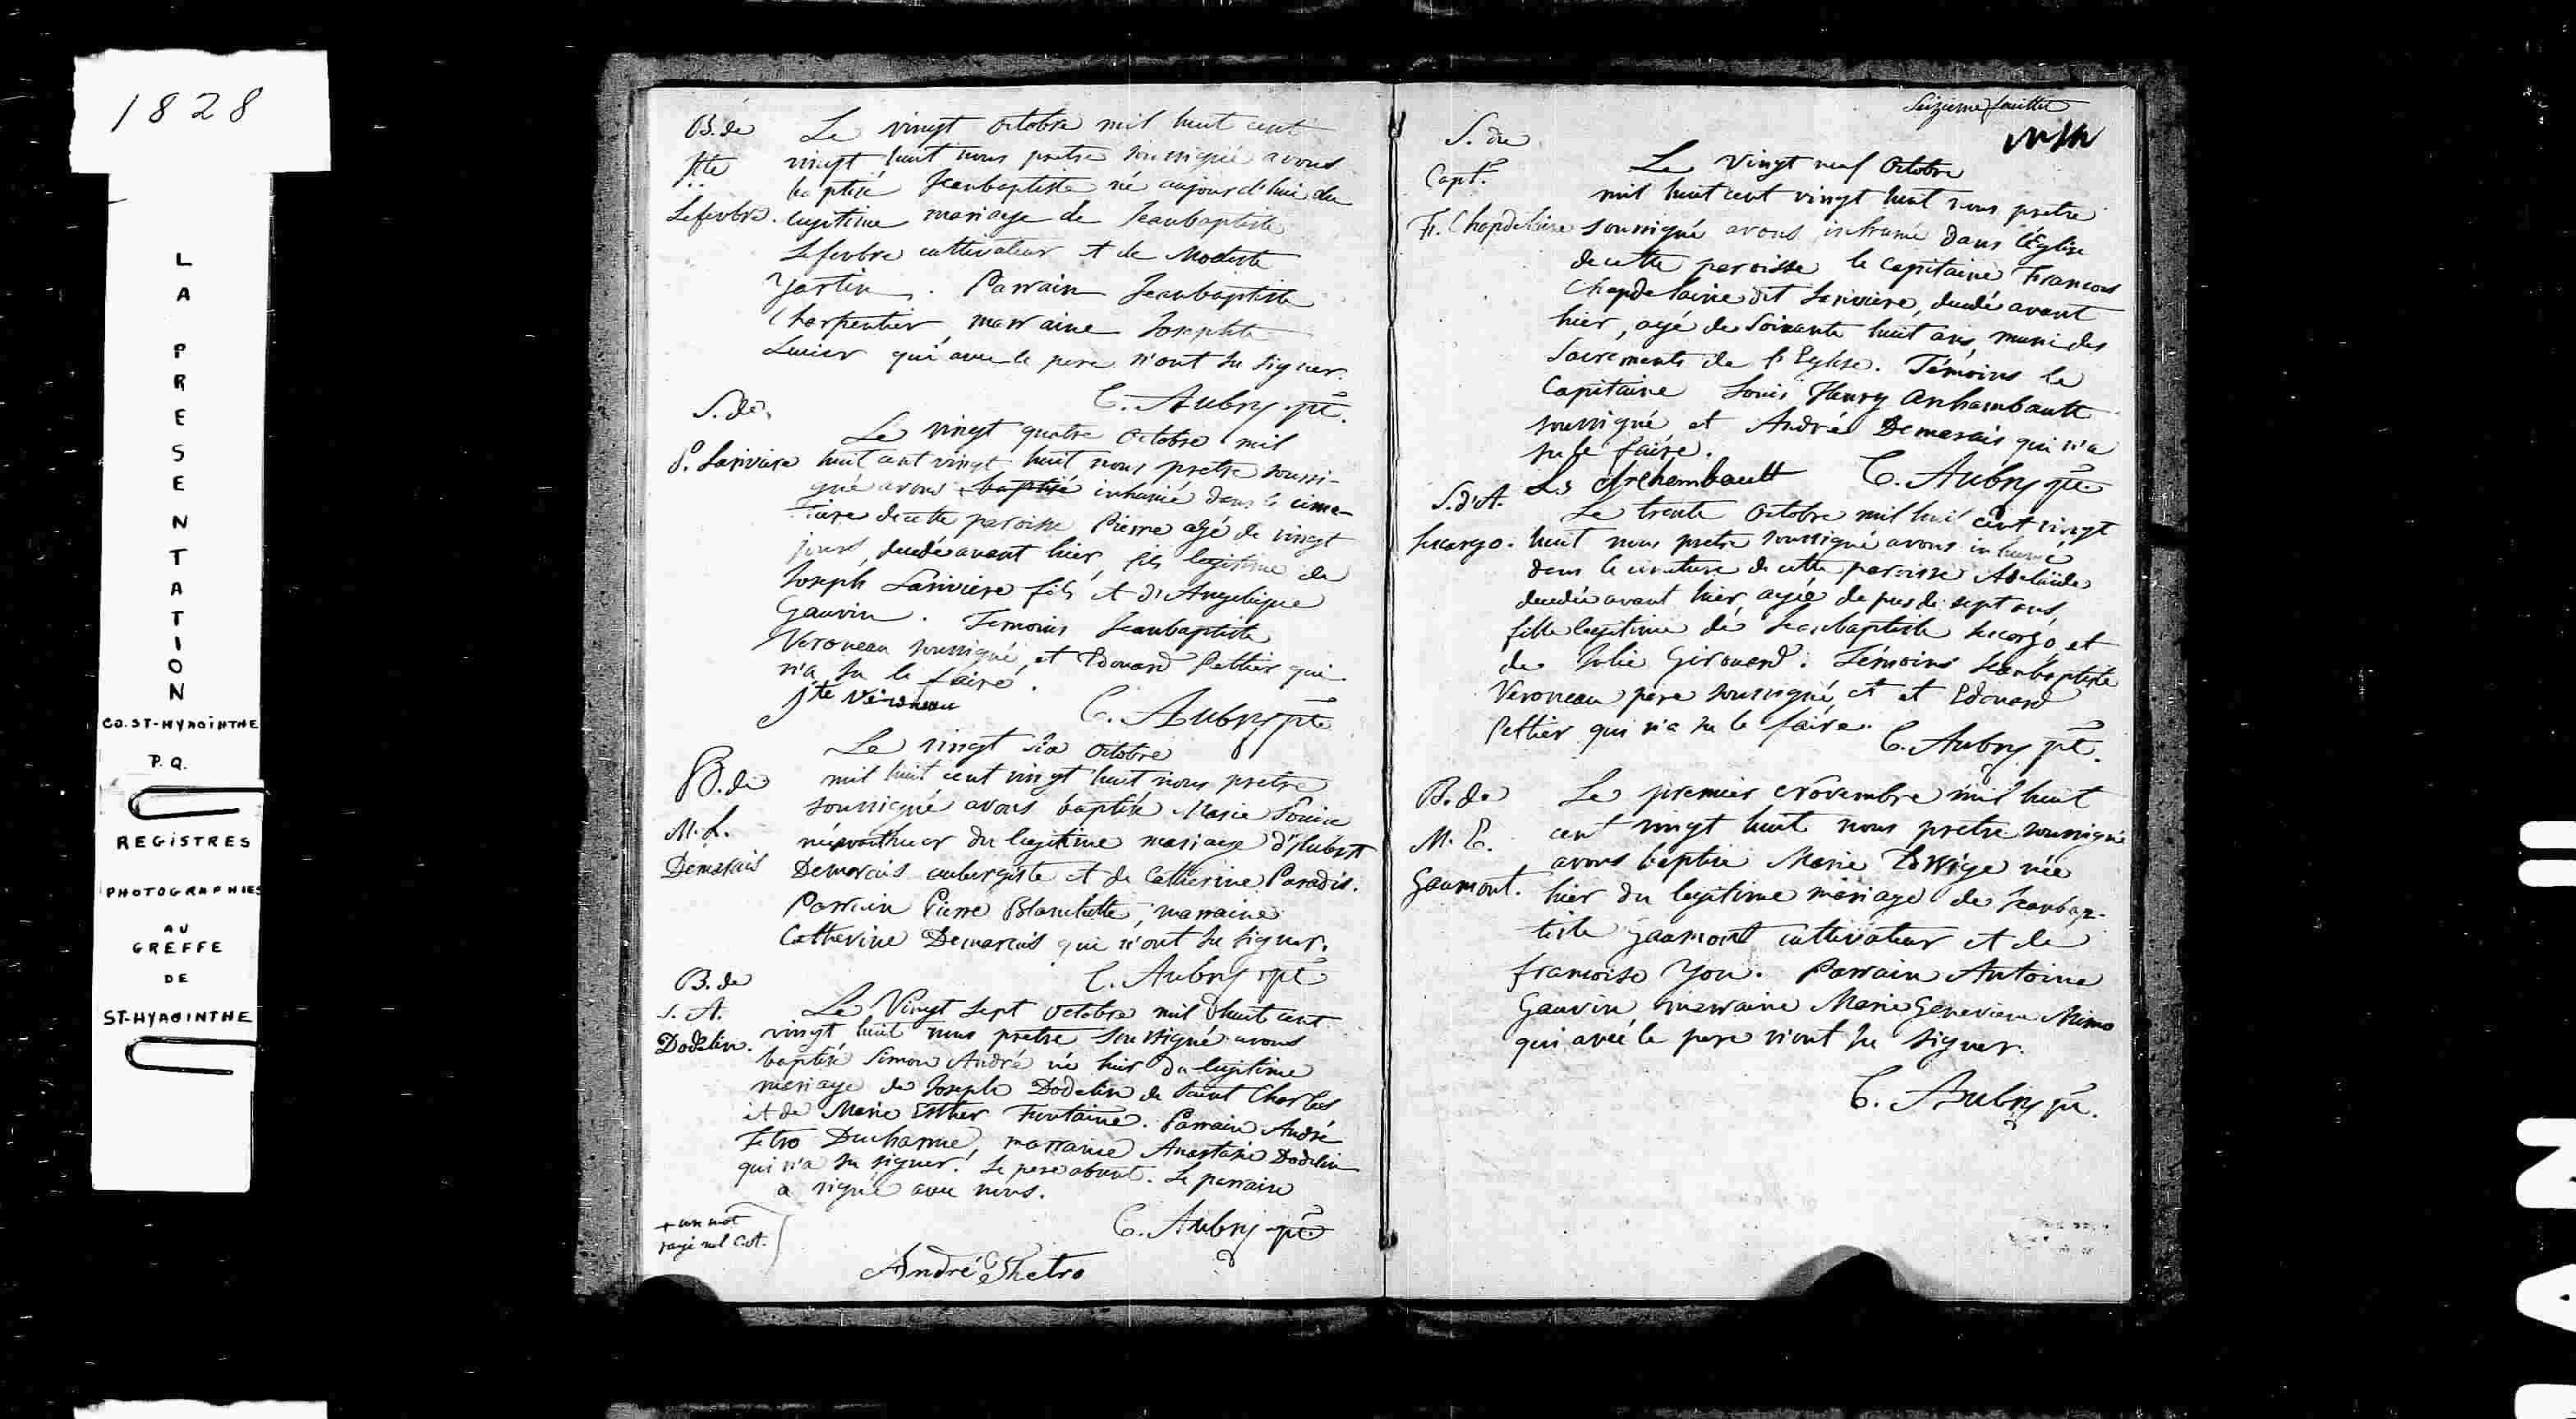 1828
LA PRESENTATION
CO. ST-HYACINTHE
P.Q.
REGISTRES
PHOTOGRAPHIES
AU
GREFFE
DE
ST-HYACINTHE
B. de
Jte
Lefevbre.
Le vingt octobre mil huit cent
vingt huit nous pretre soussigné avons
baptisé Jeanbaptiste né aujourd'hui du
legitime mariage de Jeanbaptiste
Lefevbre cultivateur et de Modeste
Parrain Jeanbaptiste
Charpentier, marraine Josephte
Lucier qui avec le pere n'ont su signer.
C. Aubry ptre.
S. de
P. Lariviere
Le vingt quatre octobre mil
huit cent vingt huit nous pretre soussi-
gné avons baptisé inhumé dans le cime-
tiere de cette paroisse Pierre agé de vingt
jours, decedé avant hier, fils legitime de
Joseph Lariviere fils et d'Angelique
Gauvin. Temoins Jeanbaptiste
Veroneau soussigné, et Edouard Pettier qui
n'a su le faire.
Jte Veroneau
C. Aubry ptre
B. de
M. L.
Demarais
Le vingt six octobre
mil huit cent vingt huit nous pretre
soussigné avons baptisé Marie Louise
née avant hier du legitime mariage d'Hubert
Demarais aubergiste et de Catherine Paradis.
Parrain Pierre Blanchette, marraine
Catherine Demarais qui n'ont su signer.
C. Aubry ptre
B. de
S. A.
Dodelin.
Le Vingt sept octobre mil huit cent
vingt huit nous pretre soussigné avons
baptisé Simon André né hier du legitime
mariage de Joseph Dodelin de Saint Charles
et de Marie Esther Fontaine. Parrain André
Fetro Ducharme, marraine Anastasie Dodelin
qui n'a su signer. Le pere absent. Le parrain
a signé avec nous.
+ un mot
rayé nul C.A.
C. Aubry ptre
André Phetro
Seizieme feuillet
S. du
Capt.
Fr. Chapdelaine
Le Vingt neuf Octobre
mil huit cent vingt huit nous pretre
soussigné avons inhumé dans l'Eglise
de cette paroisse le Capitaine Francois
Chapdelaine dit Lariviere, decedé avant
hier, agé de Soixante huit ans, muni des
Sacrements de l'Eglise. Témoins le
Capitaine Louis Henry Archambault
soussigné et André Demarais qui n'a
su le faire.
Ls Archambault
C. Aubry ptre
S. d'A.
Le trente Octobre mil huit cent vingt
huit nous pretre soussigné avons inhumé
dans le cimetiere de cette paroisse Adelaide
decedée avant hier, agée de pres de sept ans,
fille legitime de Jeanbaptiste et
de Julie Girouard. Témoins Jeanbaptiste
Veroneau pere soussigné, et et Edouard
Pettier qui n'a su le faire.
C. Aubry ptre.
B. de
M. E.
Gaumont.
Le premier Novembre mil huit
cent vingt huit nous pretre soussigné
avons baptisé Marie Edwige née
hier du legitime mariage de Jeanbap-
tiste Gaumont cultivateur et de
francoise You. Parrain Antoine
Gauvin, marraine Marie Genevieve Mimo
qui avec le pere n'ont su signer.
C. Aubry ptre.